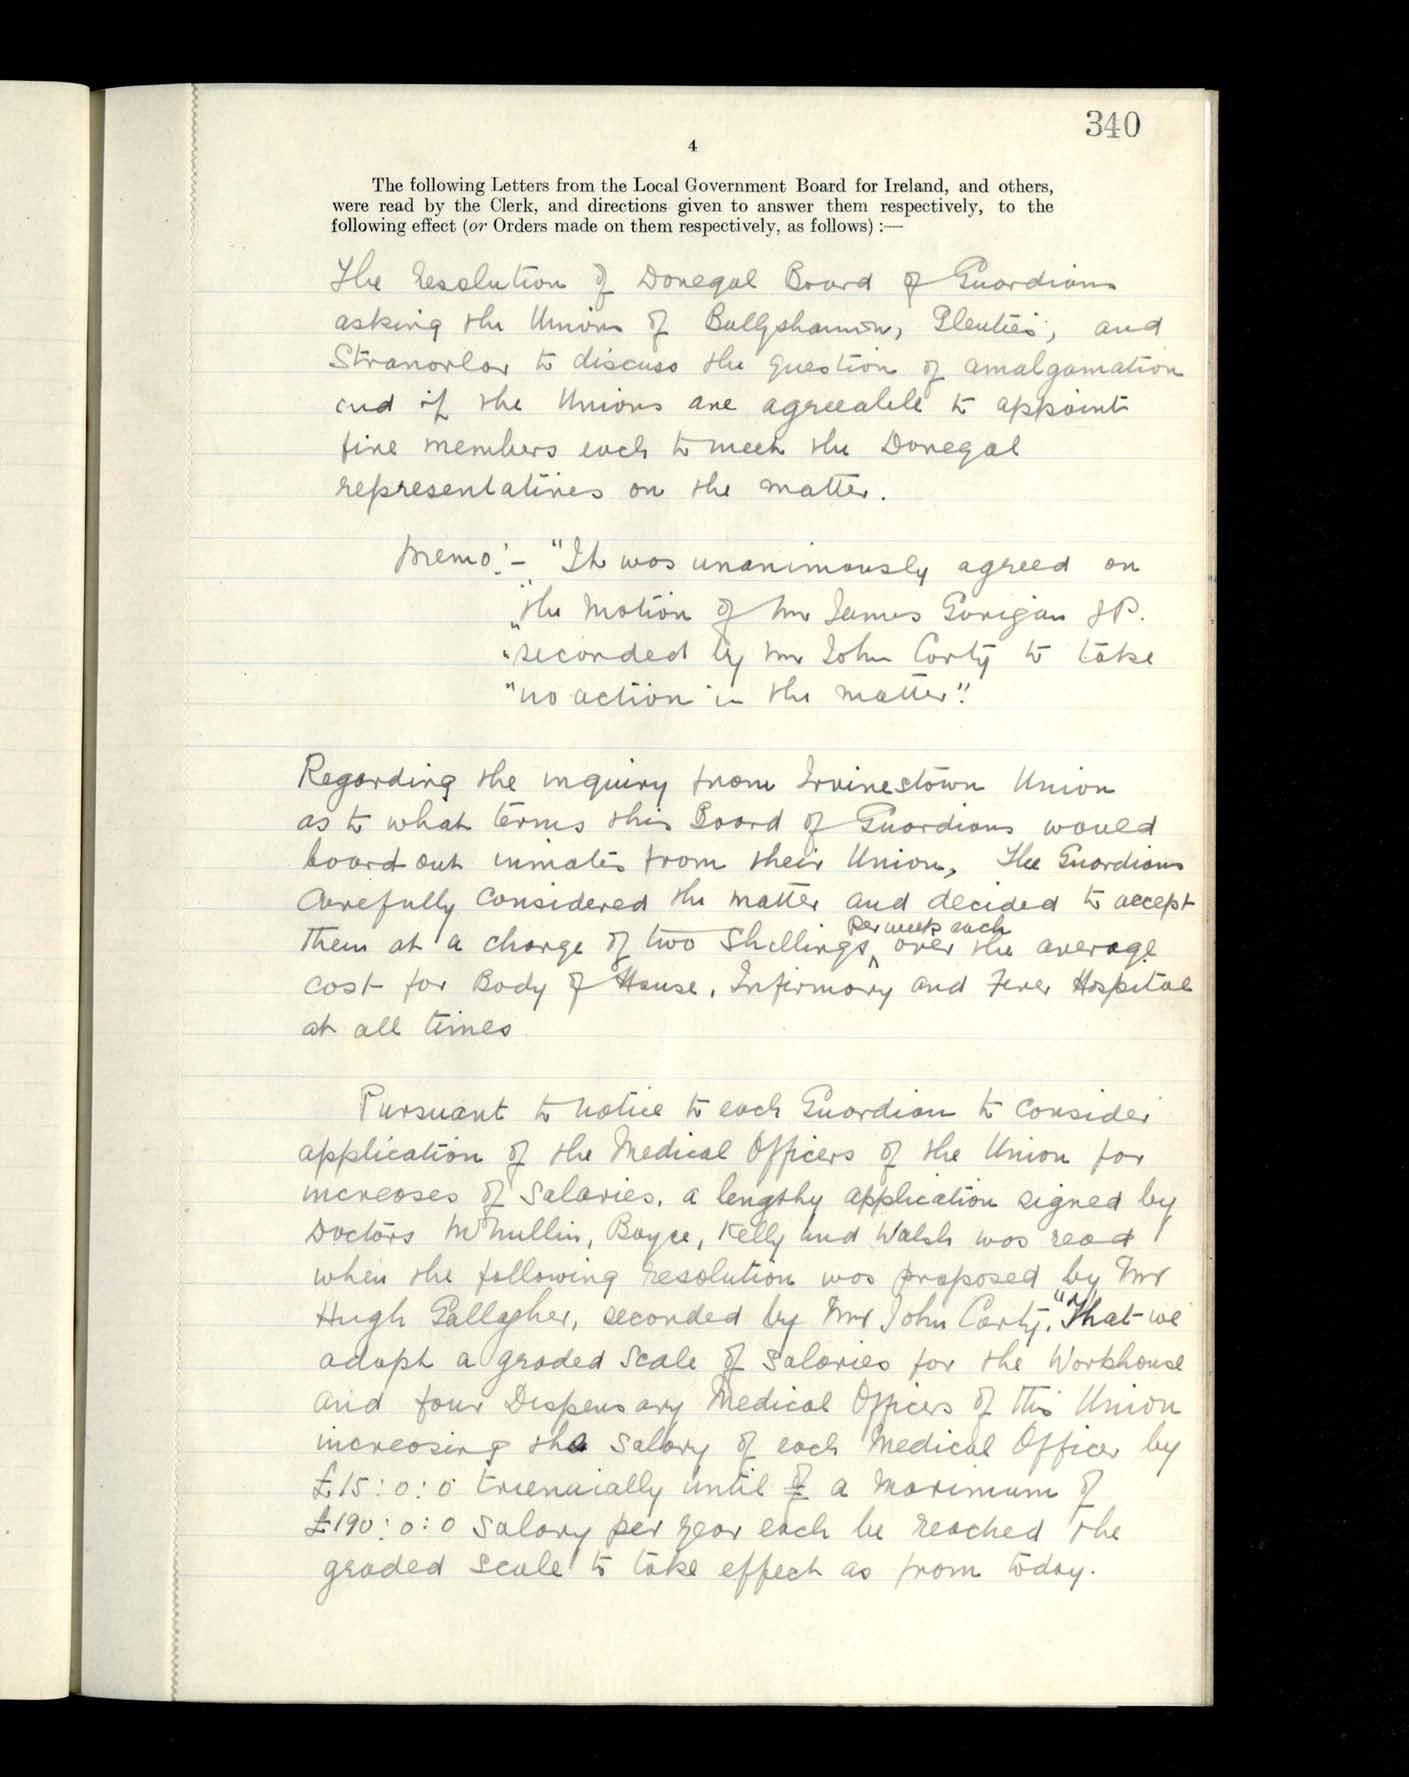 340
4
The following Letters from the Local Government Board for Ireland, and others,
were read by the Clerk, and directions given to answer them respectively, to the
following effect (or Orders made on them respectively, as follows) :—
The resolution of Donegal Board of Guardians
asking the Unions of Ballyshannon, Glenties, and
Stranorlar to discuss the question of amalgamation
and if the Unions are agreeable to appoint
five members each to meet the Donegal
representatives on the matter.
Memo:- "It was unanimously agreed on
"the motion of Mr James Gorigan J.P.
"seconded by Mr John Carty to take
"no action in the matter".
Regarding the inquiry from Irvinestown Union
as to what terms this Board of Guardians would
board out inmates from their Union, The Guardians
carefully considered the matter and decided to accept
per week each
them at a charge of two shillings ^ over the average
cost for Body of House, Infirmary and Fever Hospital
at all times
Pursuant to notice to each Guardian to consider
application of the Medical Officers of the Union for
increases of salaries, a lengthy application signed by
Doctors McMullin, Boyce, Kelly and Walsh was read
when the following resolution was proposed by Mr
Hugh Gallagher, seconded by Mr John Carty, "That we
adopt a graded scale of salaries for the Workhouse
and four Dispensary Medical Officers of this Union
increasing the salary of each Medical Officer by
£15:0:0 triennially until of a maximum of
£190:0:0 salary per year each be reached the
graded scale to take effect as from today.